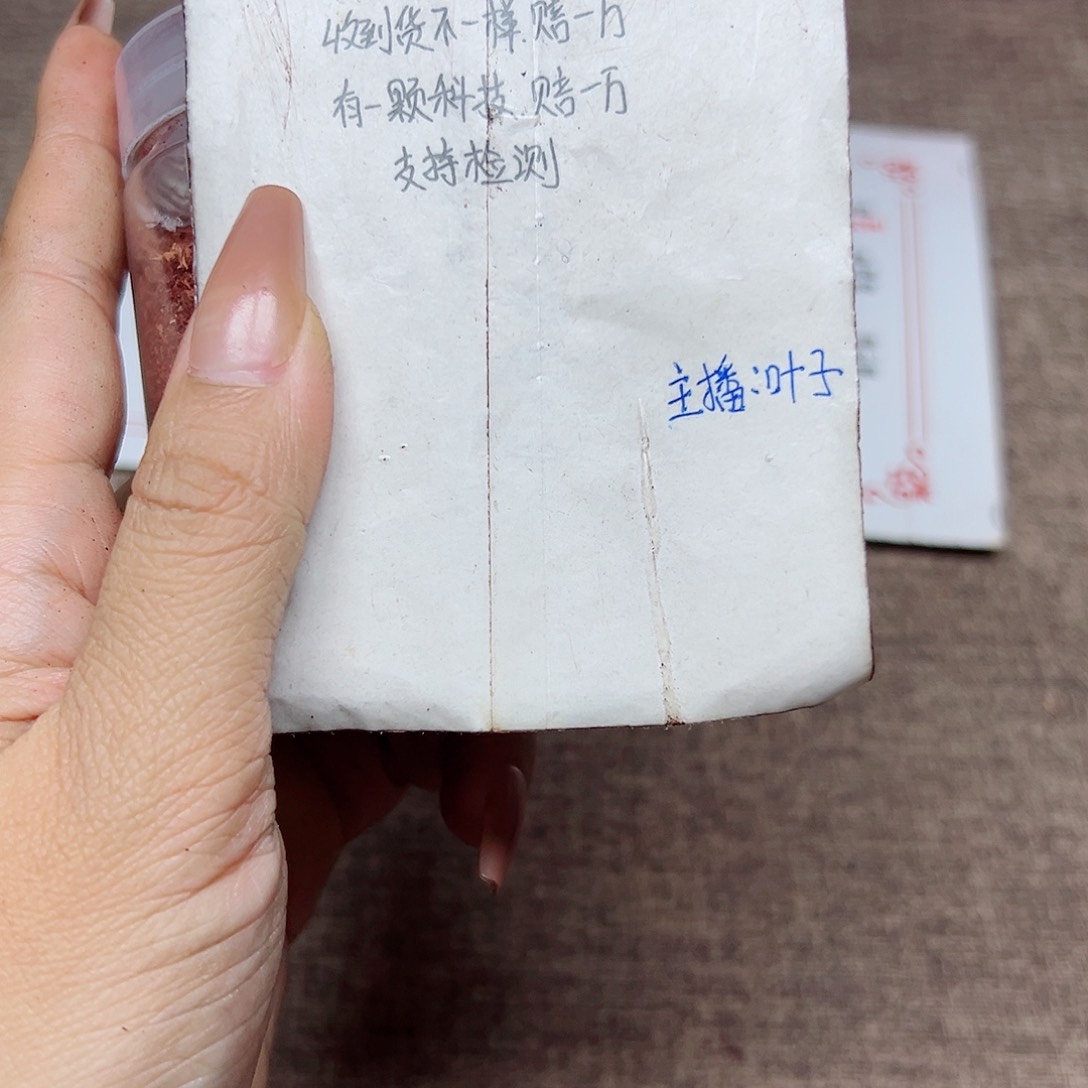 收到货不一样.赔一万
有一颗科技.赔一万
支持检测
主播:叶子